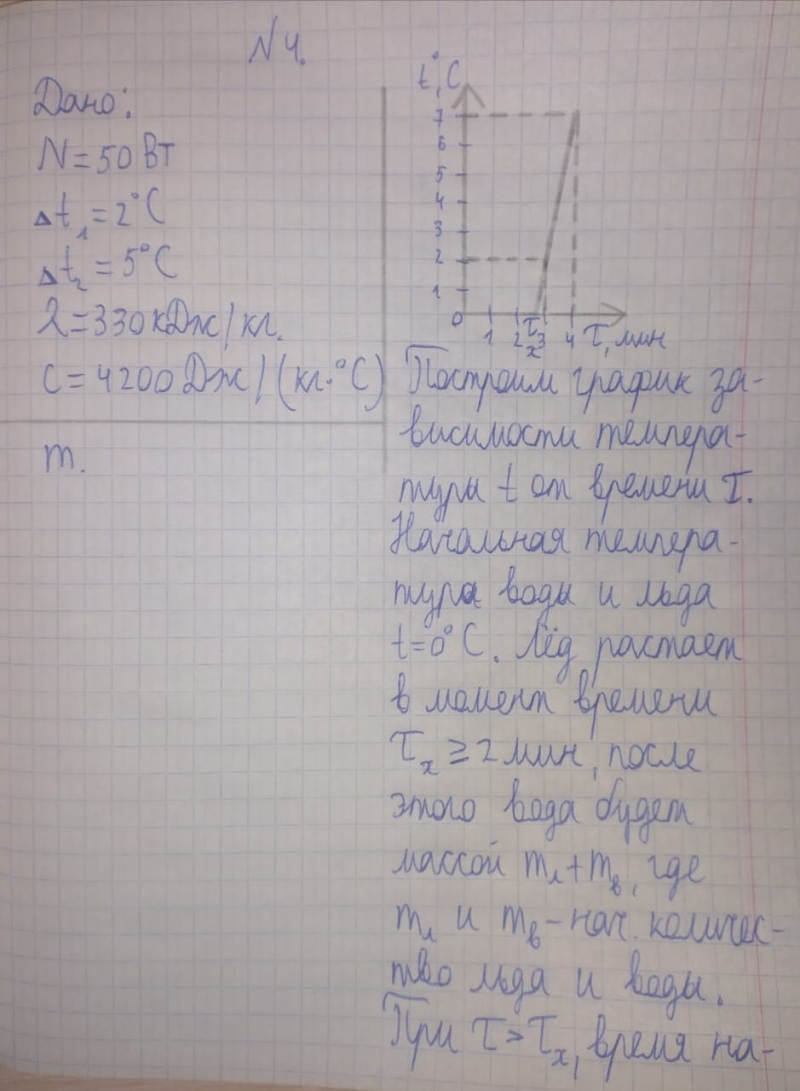 N4.
Дано:
N=50Вт
Δt₁=2°C
Δt₂=5°C
λ=330кДж/кг.
C=4200Дж/(кг·°C)
m.
t°,C
7
6
5
4
3
2
1
0 1 2 τₓ 3 4 τ, мин
Построим график за-
висимости темпера-
туры t от времени τ.
Начальная темпера-
тура воды и льда
t=0°C. Лёд растает
в момент времени
τₓ ≥ 2 мин, после
этого вода будет
массой mл+mв, где
mл и mв – нач. количес-
тво льда и воды.
При τ > τₓ, время на-